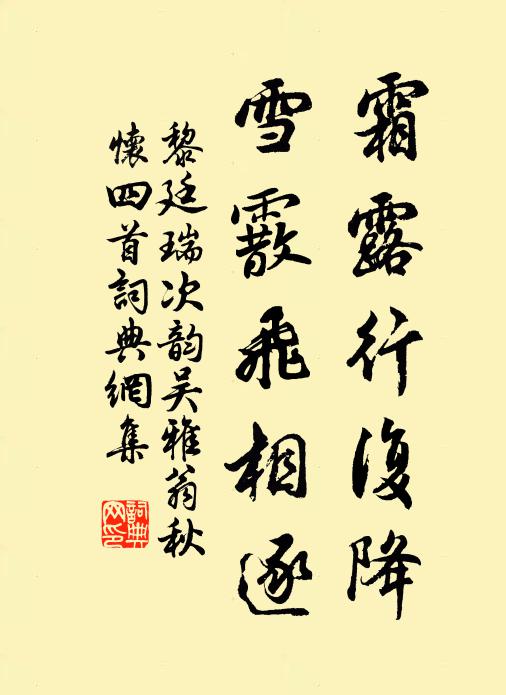 霜露行復降
雪霰飛相逐
黎廷瑞次韵吴雅翁秋
懷四首詞典網集
詞典
网印